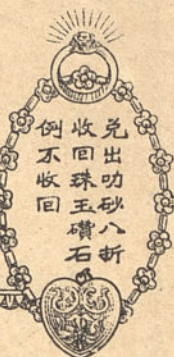 兌出叨砂八折
收回珠玉鑽石
例不收回